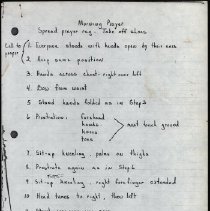 Morning Prayer
Spread prayer rug. Take off shoes
Call to prayer
1. Everyone stands with hands open by their ears
2. Very same position
3. Hands across chest - right over left
4. Bow from waist
5. Stand hands folded as in Step 3
6. Prostration: forehead
hands
knees
toes
must touch ground
7. Sit-up kneeling, palms on thighs
8. Prostrate again as in Step 6
9. Sit-up kneeling, right forefinger extended
10 Head turns to right, then left